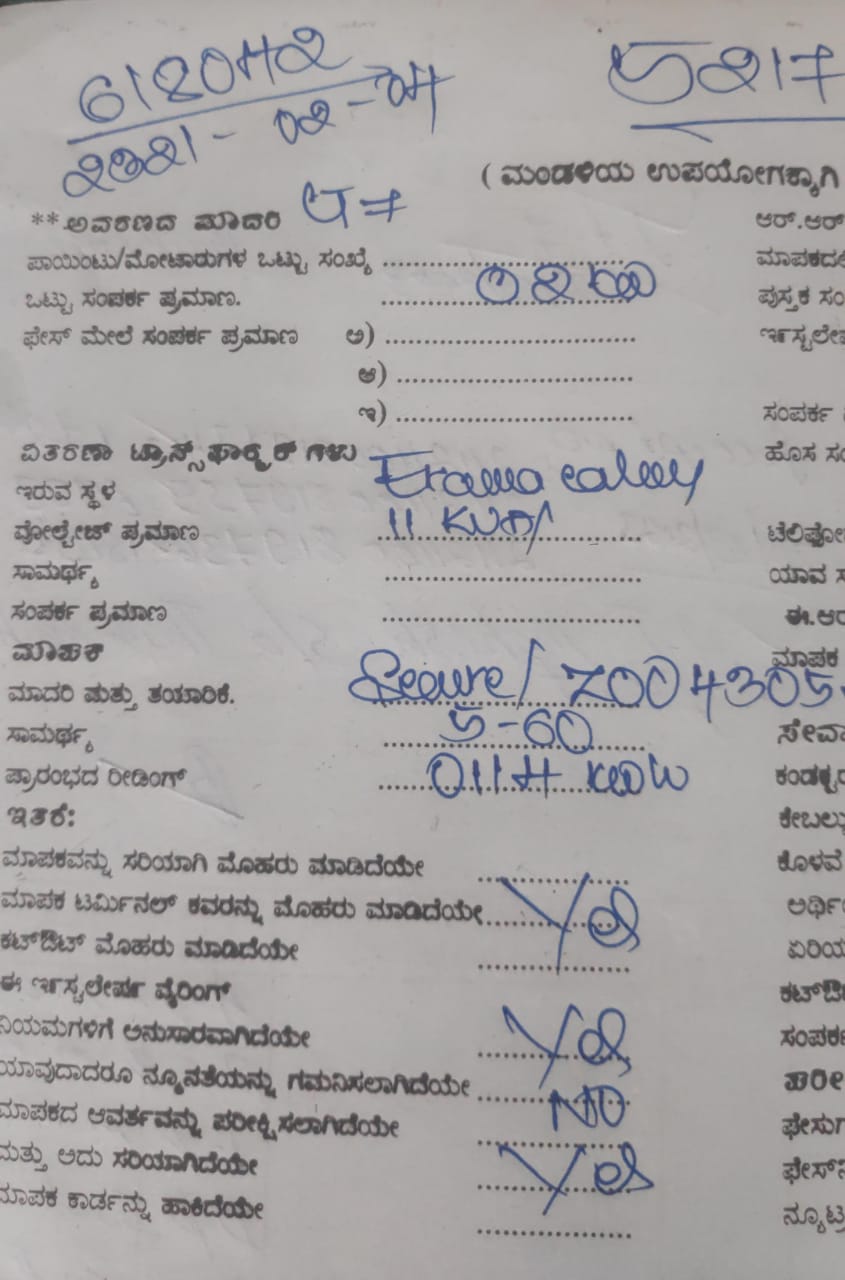 6180H2
5217
2021-02-04
( ಮಂಡಳಿಯ ಉಪಯೋಗಕ್ಕಾಗಿ
**.ಅವರಣದ ಮಾದರಿ
ಆರ್.ಆರ್
ಪಾಯಿಂಟು/ಮೋಟಾರುಗಳ ಒಟ್ಟು ಸಂಖ್ಯೆ
ಮಾಪಕದಲಿ
ಒಟ್ಟು ಸಂಪರ್ಕ ಪ್ರಮಾಣ. 02 kw
ಪುಸ್ತಕ ಸಂ
ಫೇಸ್ ಮೇಲೆ ಸಂಪರ್ಕ ಪ್ರಮಾಣ ಅ)
ಇನ್ಸ್ಟಲೇ
ಆ)
ಇ)
ಸಂಪರ್ಕ
ವಿತರಣಾ ಟ್ರಾನ್ಸ್‌ಫಾರ್ಮರ್ ಗಳು
ಹೊಸ ಸಂ
ಇರುವ ಸ್ಥಳ
ವೋಲ್ಟೇಜ್ ಪ್ರಮಾಣ 11 KV
ಟೆಲಿಫೋ
ಸಾಮರ್ಥ್ಯ
ಯಾವ ಸ
ಸಂಪರ್ಕ ಪ್ರಮಾಣ
ಈ.ಆರ
ಮಾಪಕ
ಮಾಪಕ
ಮಾದರಿ ಮತ್ತು ತಯಾರಿಕೆ. Secure/ Z004305
ಸಾಮರ್ಥ್ಯ 5-60
ಸೇವಾ
ಪ್ರಾರಂಭದ ರೀಡಿಂಗ್ 011H
ಕಂಡಕ್ಟರ
ಇತರೆ:
ಕೇಬಲ್ಸ
ಮಾಪಕವನ್ನು ಸರಿಯಾಗಿ ಮೊಹರು ಮಾಡಿದೆಯೇ
ಕೊಳವೆ
ಮಾಪಕ ಟರ್ಮಿನಲ್ ಕವರನ್ನು ಮೊಹರು ಮಾಡಿದೆಯೇ Yes
ಅರ್ಥಿ
ಕಟ್‌ಔಟ್ ಮೊಹರು ಮಾಡಿದೆಯೇ
ಏರಿಯ
ಈ ಇನ್ಸ್ಟಲೇಷನ ವೈರಿಂಗ್
ಕಟ್‌ಔ
ನಿಯಮಗಳಿಗೆ ಅನುಸಾರವಾಗಿದೆಯೇ Yes
ಸಂಪರ್ಕ
ಯಾವುದಾದರೂ ನ್ಯೂನತೆಯನ್ನು ಗಮನಿಸಲಾಗಿದೆಯೇ NO
ಪರೀ
ಮಾಪಕದ ಆವರ್ತವನ್ನು ಪರೀಕ್ಷಿಸಲಾಗಿದೆಯೇ
ಫೇಸುಗ
ಮತ್ತು ಅದು ಸರಿಯಾಗಿದೆಯೇ Yes
ಫೇಸ್‌ನ
ಮಾಪಕ ಕಾರ್ಡನ್ನು ಹಾಕಿದೆಯೇ
ನ್ಯೂಟ್ರ